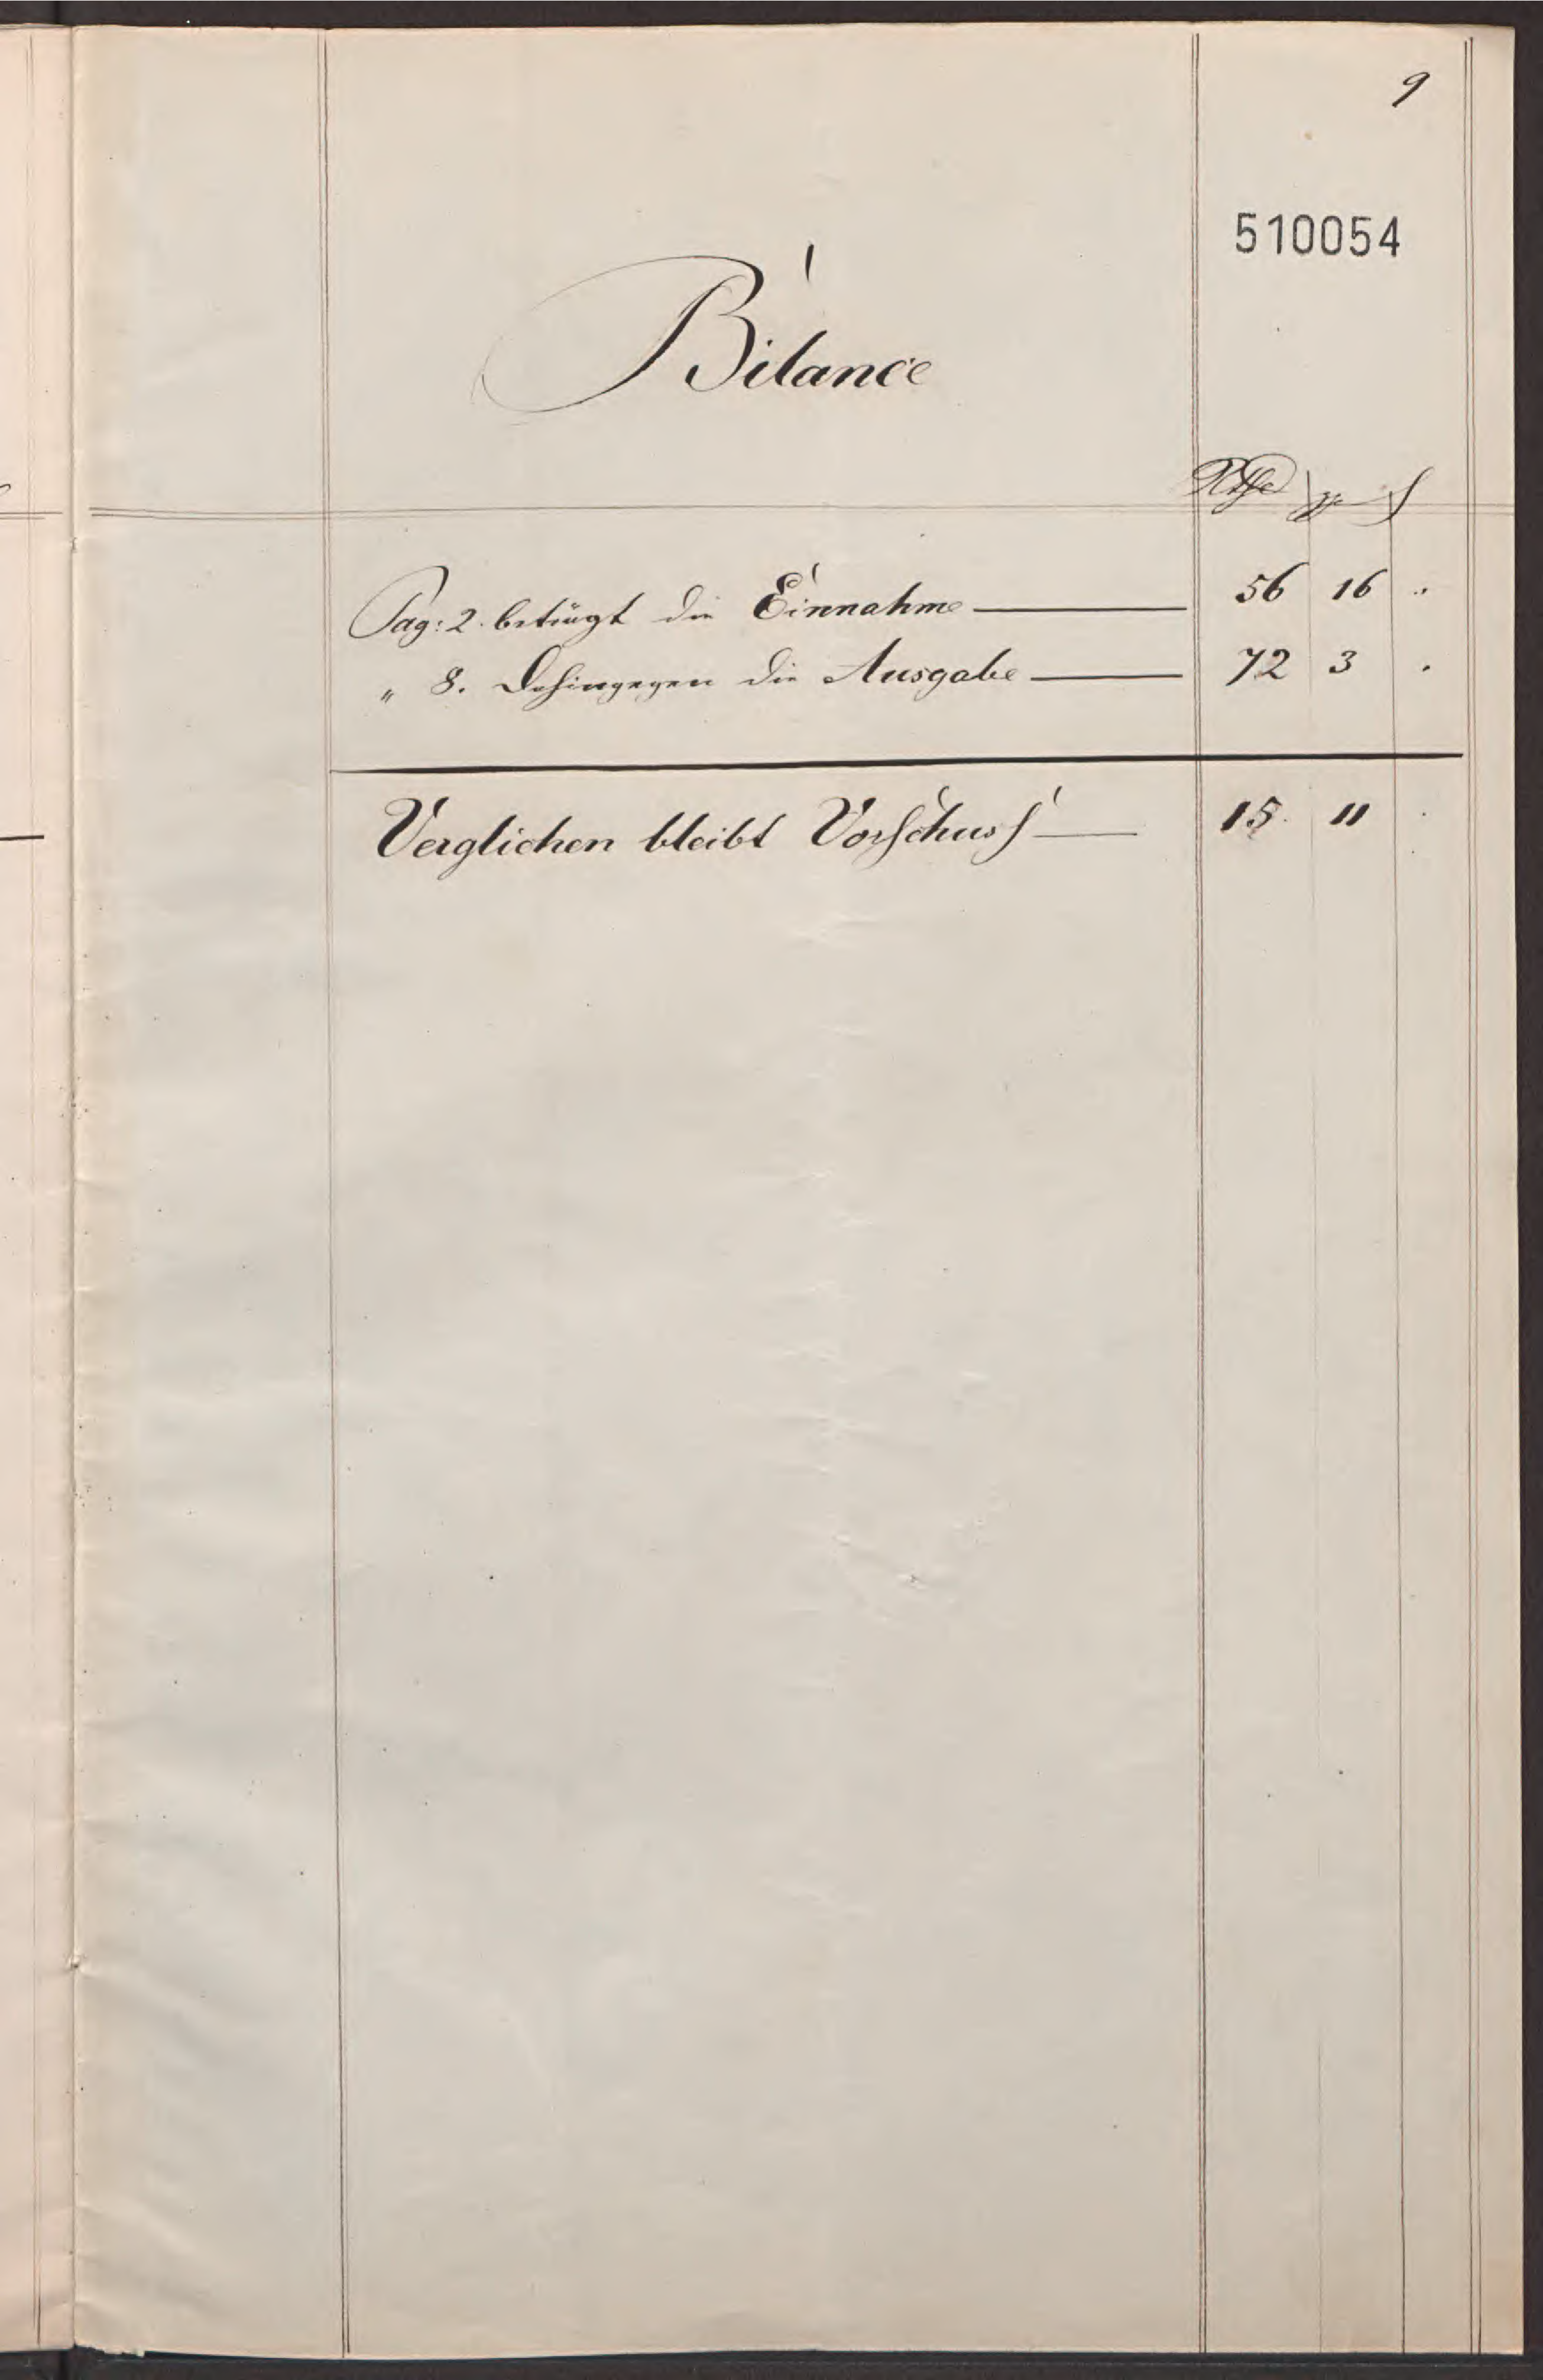 9
510054
Bilance
Rthr ggr ₰
Pag: 2. beträgt die Einnahme — 56 16 "
" 8. Dahingegen die Ausgabe — 72 3 .
Verglichen bleibt Vorschuss — 15. 11 .